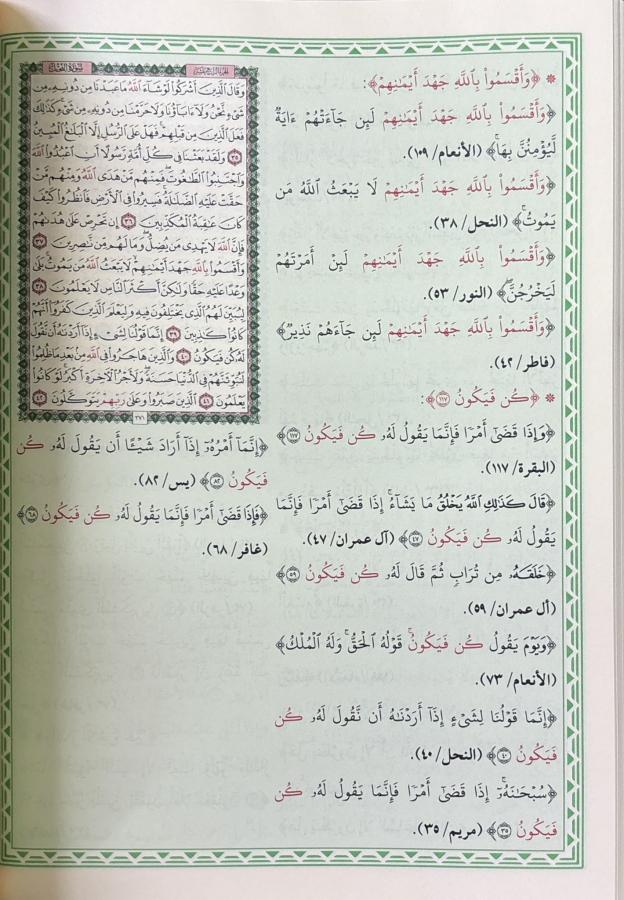 * ﴿وَأَقْسَمُوا۟ بِٱللَّهِ جَهْدَ أَيْمَـٰنِهِمْ﴾:
﴿وَأَقْسَمُوا۟ بِٱللَّهِ جَهْدَ أَيْمَـٰنِهِمْ لَئِن جَآءَتْهُمْ ءَايَةٌ
لَّيُؤْمِنُنَّ بِهَا ۚ﴾ (الأنعام/ ١٠٩).
﴿وَأَقْسَمُوا۟ بِٱللَّهِ جَهْدَ أَيْمَـٰنِهِمْ لَا يَبْعَثُ ٱللَّهُ مَن
يَمُوتُ ۚ﴾ (النحل/ ٣٨).
﴿وَأَقْسَمُوا۟ بِٱللَّهِ جَهْدَ أَيْمَـٰنِهِمْ لَئِنْ أَمَرْتَهُمْ
لَيَخْرُجُنَّ ۖ﴾ (النور/ ٥٣).
﴿وَأَقْسَمُوا۟ بِٱللَّهِ جَهْدَ أَيْمَـٰنِهِمْ لَئِن جَآءَهُمْ نَذِيرٌ﴾
(فاطر/ ٤٢).
* ﴿كُن فَيَكُونُ ١١٧﴾:
﴿وَإِذَا قَضَىٰٓ أَمْرًا فَإِنَّمَا يَقُولُ لَهُۥ كُن فَيَكُونُ ١١٧﴾
(البقرة/ ١١٧).
﴿قَالَ كَذَٰلِكِ ٱللَّهُ يَخْلُقُ مَا يَشَآءُ ۚ إِذَا قَضَىٰٓ أَمْرًا فَإِنَّمَا
يَقُولُ لَهُۥ كُن فَيَكُونُ ٤٧﴾ (آل عمران/ ٤٧).
﴿خَلَقَهُۥ مِن تُرَابٍ ثُمَّ قَالَ لَهُۥ كُن فَيَكُونُ ٥٩﴾
(آل عمران/ ٥٩).
﴿وَيَوْمَ يَقُولُ كُن فَيَكُونُ ۚ قَوْلُهُ ٱلْحَقُّ ۚ وَلَهُ ٱلْمُلْكُ﴾
(الأنعام/ ٧٣).
﴿إِنَّمَا قَوْلُنَا لِشَىْءٍ إِذَآ أَرَدْنَـٰهُ أَن نَّقُولَ لَهُۥ كُن
فَيَكُونُ ٤٠﴾ (النحل/ ٤٠).
﴿سُبْحَـٰنَهُۥٓ ۚ إِذَا قَضَىٰٓ أَمْرًا فَإِنَّمَا يَقُولُ لَهُۥ كُن
فَيَكُونُ ٣٥﴾ (مريم/ ٣٥).
الجزء الرابع عشر
سورة النحل
وَقَالَ ٱلَّذِينَ أَشْرَكُوا۟ لَوْ شَآءَ ٱللَّهُ مَا عَبَدْنَا مِن دُونِهِۦ مِن
شَىْءٍ نَّحْنُ وَلَآ ءَابَآؤُنَا وَلَا حَرَّمْنَا مِن دُونِهِۦ مِن شَىْءٍ ۚ كَذَٰلِكَ
فَعَلَ ٱلَّذِينَ مِن قَبْلِهِمْ ۚ فَهَلْ عَلَى ٱلرُّسُلِ إِلَّا ٱلْبَلَـٰغُ ٱلْمُبِينُ
٣٥ وَلَقَدْ بَعَثْنَا فِى كُلِّ أُمَّةٍ رَّسُولًا أَنِ ٱعْبُدُوا۟ ٱللَّهَ
وَٱجْتَنِبُوا۟ ٱلطَّـٰغُوتَ ۖ فَمِنْهُم مَّنْ هَدَى ٱللَّهُ وَمِنْهُم مَّنْ
حَقَّتْ عَلَيْهِ ٱلضَّلَـٰلَةُ ۚ فَسِيرُوا۟ فِى ٱلْأَرْضِ فَٱنظُرُوا۟ كَيْفَ
كَانَ عَـٰقِبَةُ ٱلْمُكَذِّبِينَ ٣٦ إِن تَحْرِصْ عَلَىٰ هُدَىٰهُمْ
فَإِنَّ ٱللَّهَ لَا يَهْدِى مَن يُضِلُّ ۖ وَمَا لَهُم مِّن نَّـٰصِرِينَ ٣٧
وَأَقْسَمُوا۟ بِٱللَّهِ جَهْدَ أَيْمَـٰنِهِمْ ۙ لَا يَبْعَثُ ٱللَّهُ مَن يَمُوتُ ۚ بَلَىٰ
وَعْدًا عَلَيْهِ حَقًّا وَلَـٰكِنَّ أَكْثَرَ ٱلنَّاسِ لَا يَعْلَمُونَ ٣٨
لِيُبَيِّنَ لَهُمُ ٱلَّذِى يَخْتَلِفُونَ فِيهِ وَلِيَعْلَمَ ٱلَّذِينَ كَفَرُوٓا۟ أَنَّهُمْ
كَانُوا۟ كَـٰذِبِينَ ٣٩ إِنَّمَا قَوْلُنَا لِشَىْءٍ إِذَآ أَرَدْنَـٰهُ أَن نَّقُولَ
لَهُۥ كُن فَيَكُونُ ٤٠ وَٱلَّذِينَ هَاجَرُوا۟ فِى ٱللَّهِ مِنۢ بَعْدِ مَا ظُلِمُوا۟
لَنُبَوِّئَنَّهُمْ فِى ٱلدُّنْيَا حَسَنَةً ۖ وَلَأَجْرُ ٱلْـَٔاخِرَةِ أَكْبَرُ ۚ لَوْ كَانُوا۟
يَعْلَمُونَ ٤١ ٱلَّذِينَ صَبَرُوا۟ وَعَلَىٰ رَبِّهِمْ يَتَوَكَّلُونَ ٤٢
٢٧١
﴿إِنَّمَآ أَمْرُهُۥٓ إِذَآ أَرَادَ شَيْـًٔا أَن يَقُولَ لَهُۥ كُن
فَيَكُونُ ٨٢﴾ (يس/ ٨٢).
﴿فَإِذَا قَضَىٰٓ أَمْرًا فَإِنَّمَا يَقُولُ لَهُۥ كُن فَيَكُونُ ٦٨﴾
(غافر/ ٦٨).